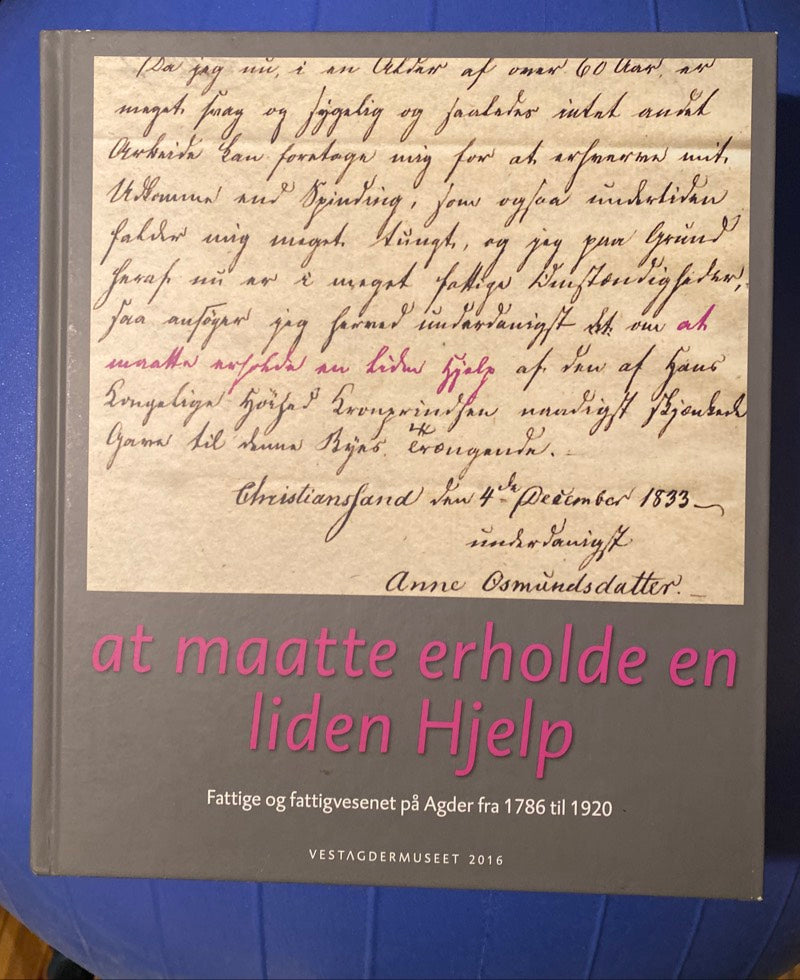 Da jeg nu, i en Alder af over 60 Aar, er
meget svag og sygelig og saaledes intet andet
Arbeide kan foretage mig for at erhverve mit
Udkomme end Spinding, som ogsaa undertiden
falder mig meget tungt, og jeg paa Grund
heraf nu er i meget fattige Omstændigheder,
saa ansøger jeg herved underdanigst om at
maatte erholde en liden Hjelp af den af Hans
Kongelige Høihed Kronprindsen naadigst skjænkede
Gave til denne Byes Trængende.
Christianssand den 4de December 1833
underdanigst
Anne Osmundsdatter.
at maatte erholde en
liden Hjelp
Fattige og fattigvesenet på Agder fra 1786 til 1920
VESTAGDERMUSEET 2016